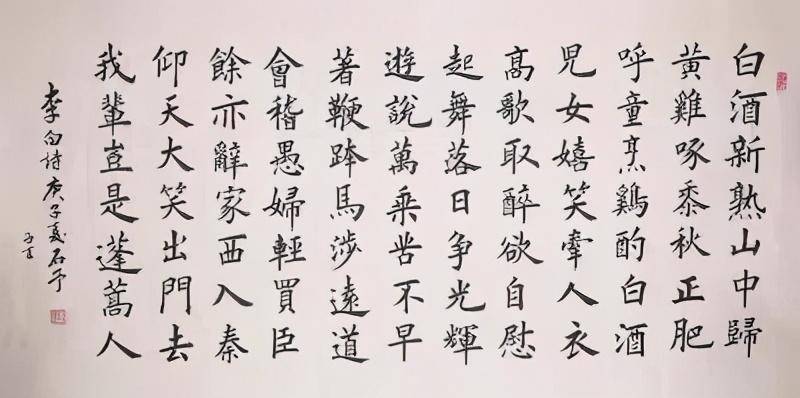 白酒新熟山中歸
黃雞啄黍秋正肥
呼童烹鷄酌白酒
兒女嬉笑牽人衣
髙歌取醉欲自慰
起舞落日争光輝
遊說萬乘苦不早
著鞭跨馬涉遠道
會稽愚婦輕買臣
餘亦辭家西入秦
仰天大笑出門去
我輩豈是蓬蒿人
李白詩庚子夏石予